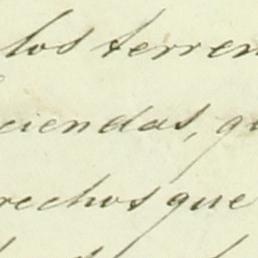 los terren
ciendas, qu
rechos que